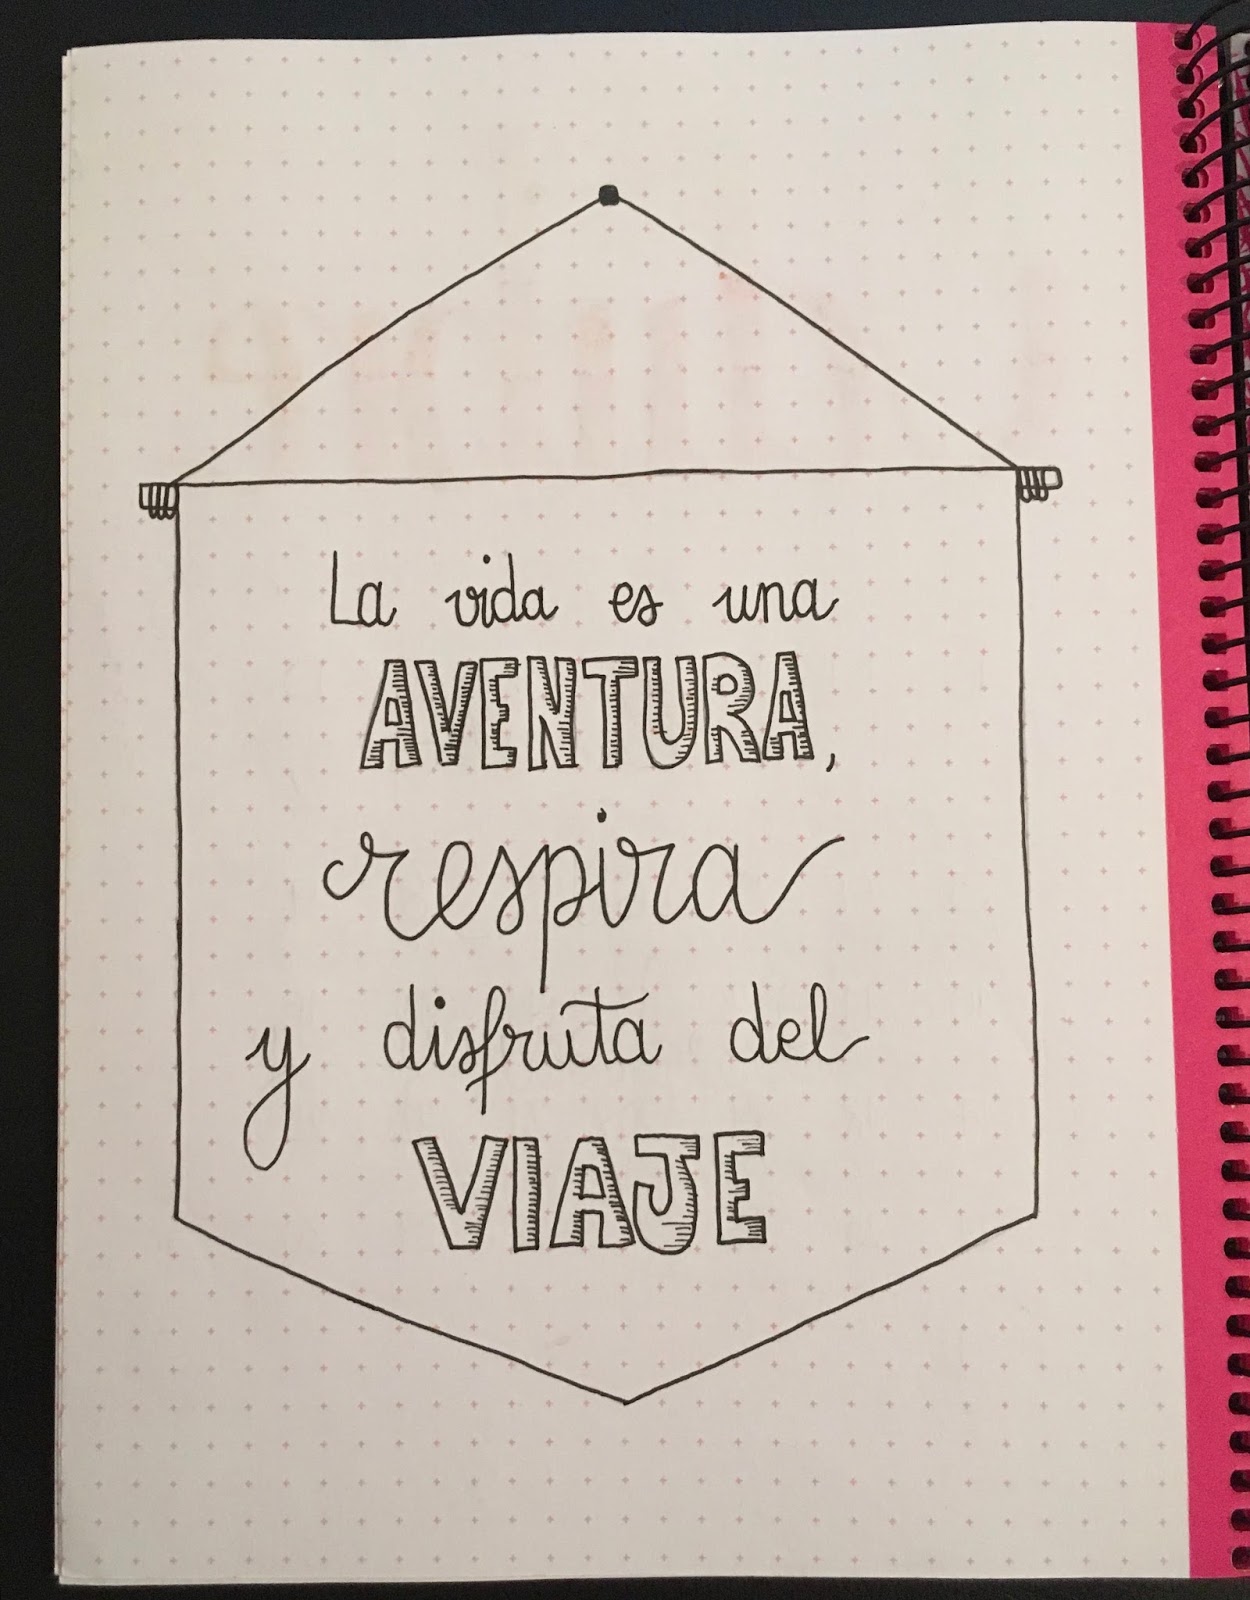 La vida es una
AVENTURA,
respira
y disfruta del
VIAJE